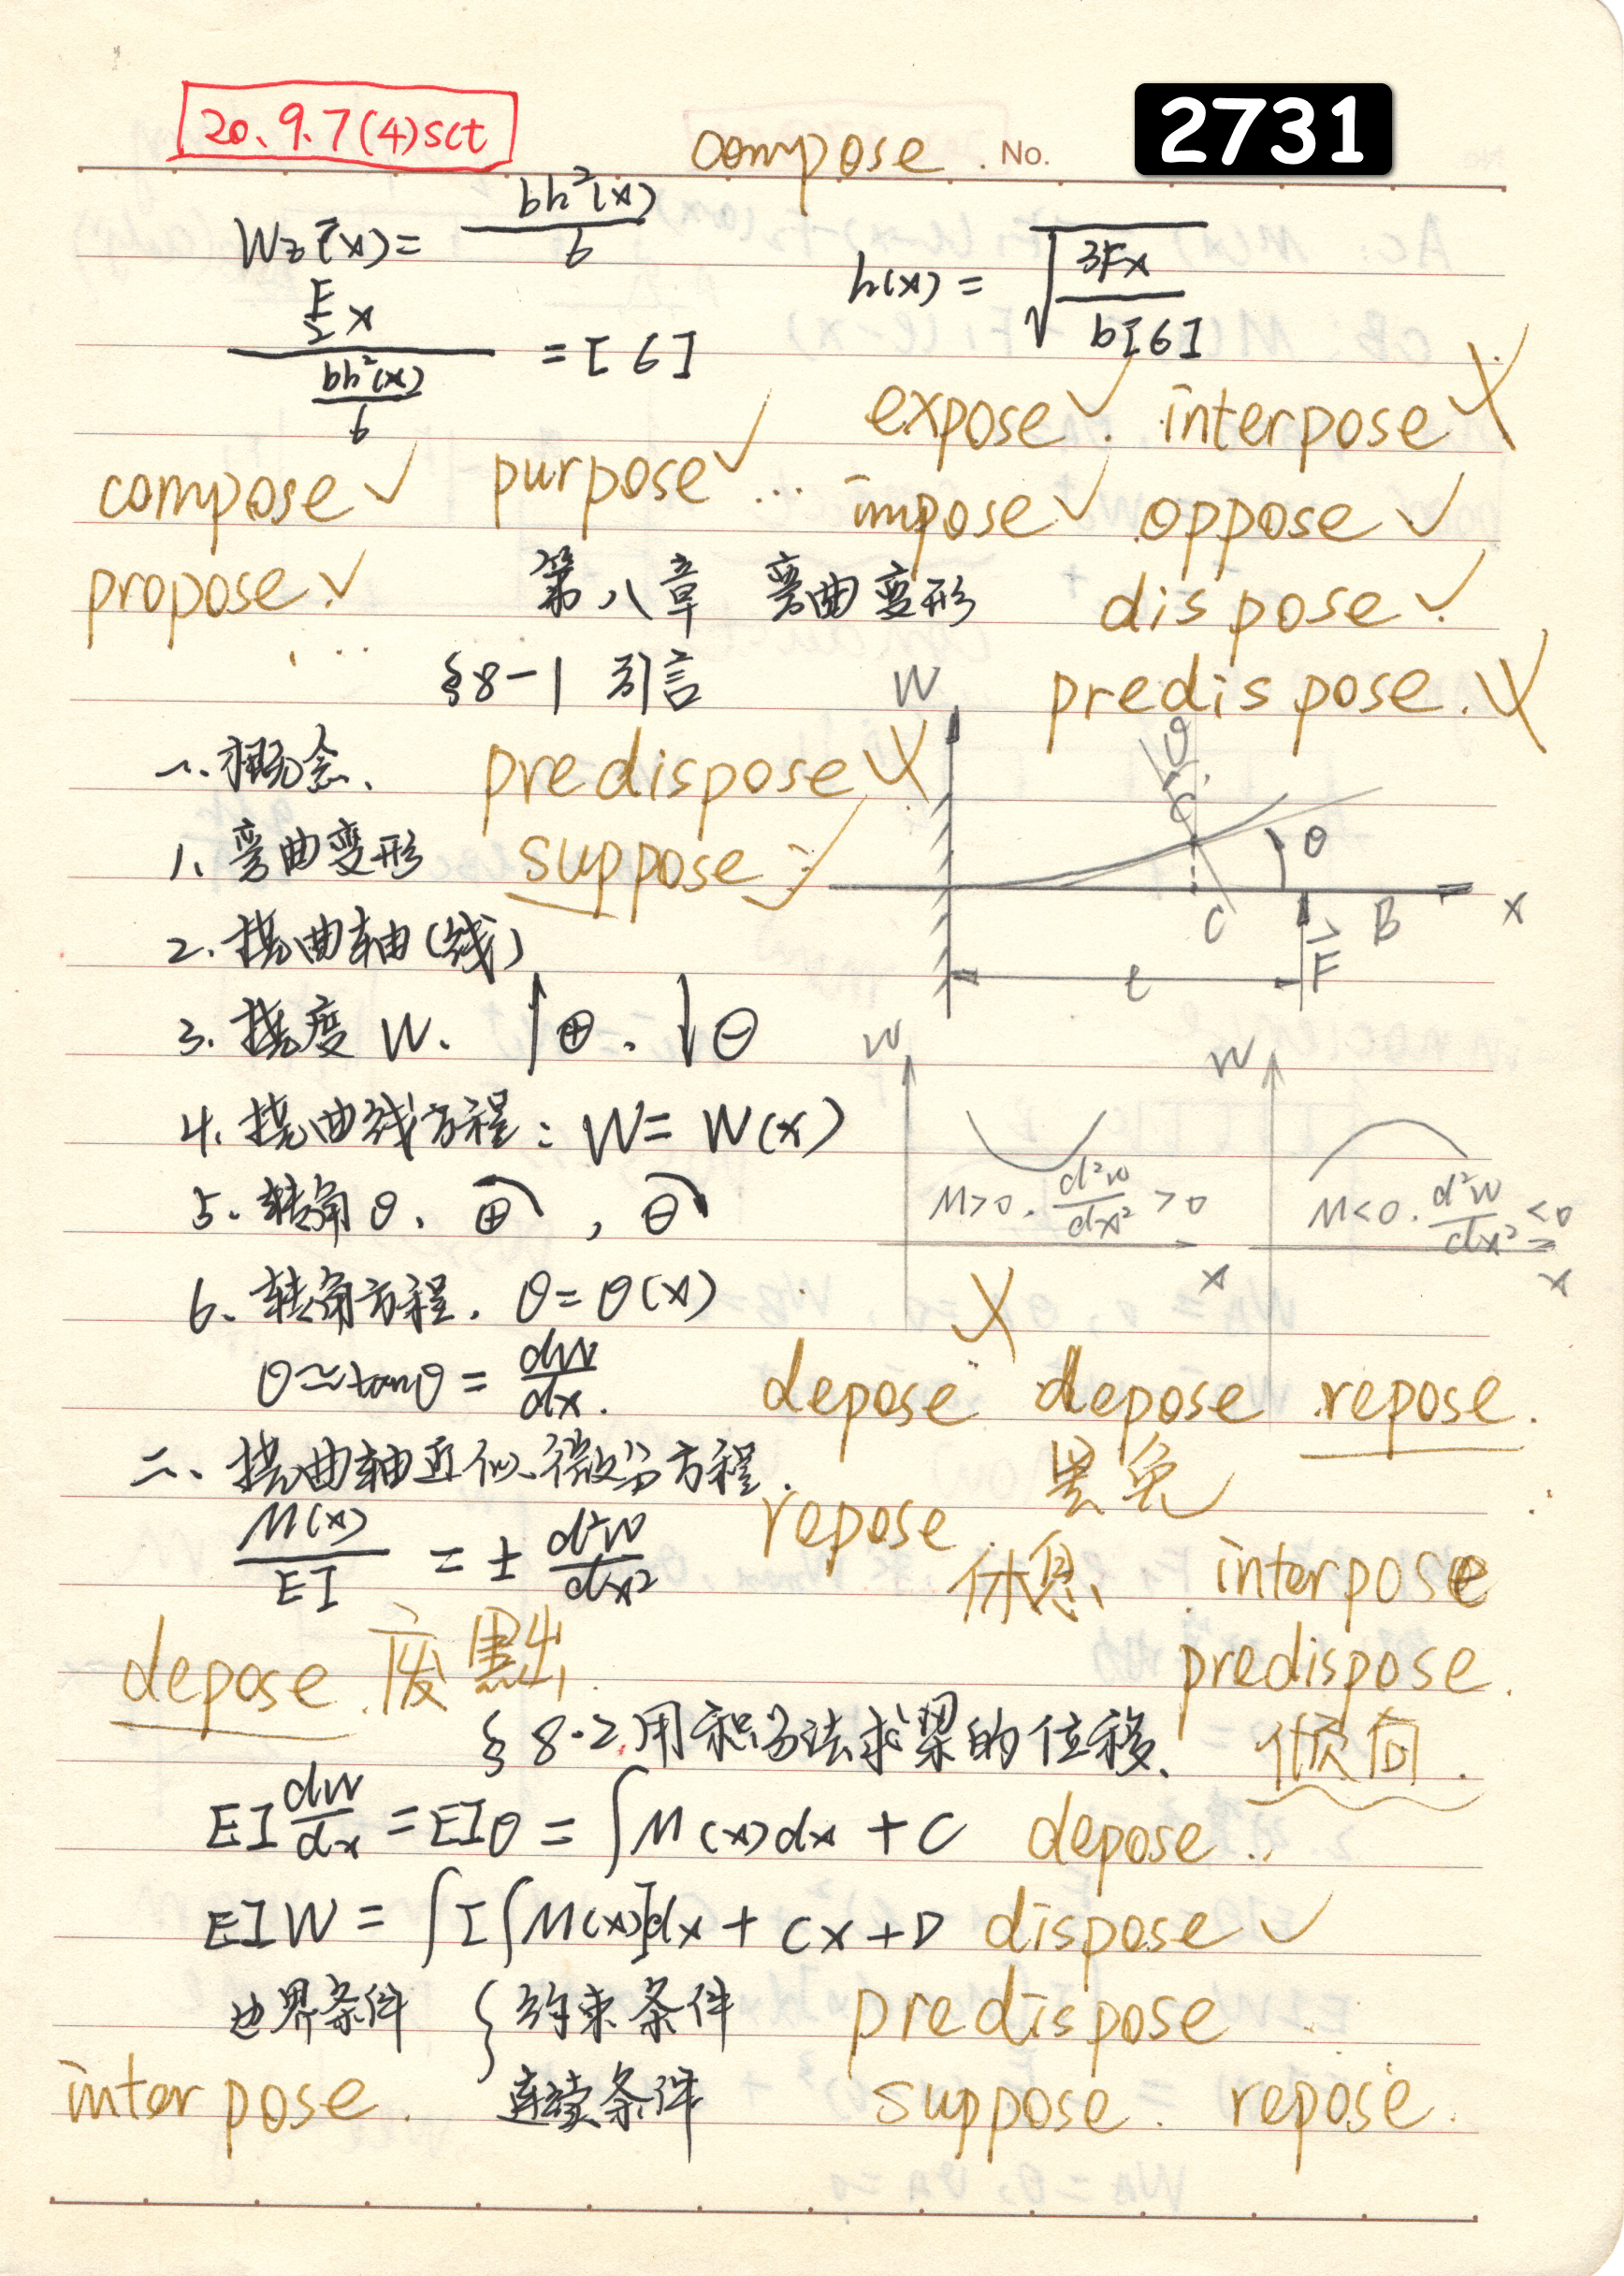 20.9.7(4)sct
compose. No. 2731
Wz(x)= bh²(x)/6
h(x)= √(3Fx/b[б])
F/2 x / (bh²(x)/6) =[б]
expose✓. interpose X
compose✓ purpose✓ ... impose✓ oppose✓
propose.✓ 第八章 弯曲变形 dispose✓
...
§8-1 引言 W predispose. X
一.概念、 predispose X
1、弯曲变形 suppose ✓
θ C' θ
C B x
F
l
2.挠曲轴(线)
3.挠度 W、 ↑⊕、↓⊖
W W
4.挠曲线方程: W= W(x)
M>0. d²w/dx² >0 M<0. d²w/dx² <0
5.转角θ、⊕,⊖
x x
6、转角方程. θ=θ(x)
X
θ≃tanθ= dw/dx. depose depose repose.
二、挠曲轴近似微分方程. 罢免
M(x)/EI = ± d²w/dx² repose 休息 interpose
depose 废黜. predispose.
§8-2.用积分法求梁的位移、 倾向.
EI dw/dx =EIθ = ∫M(x)dx + C depose..
EIW = ∫[∫M(x)]dx + Cx+D dispose ✓
边界条件 { 约束条件 predispose
interpose. 连续条件 suppose. repose.